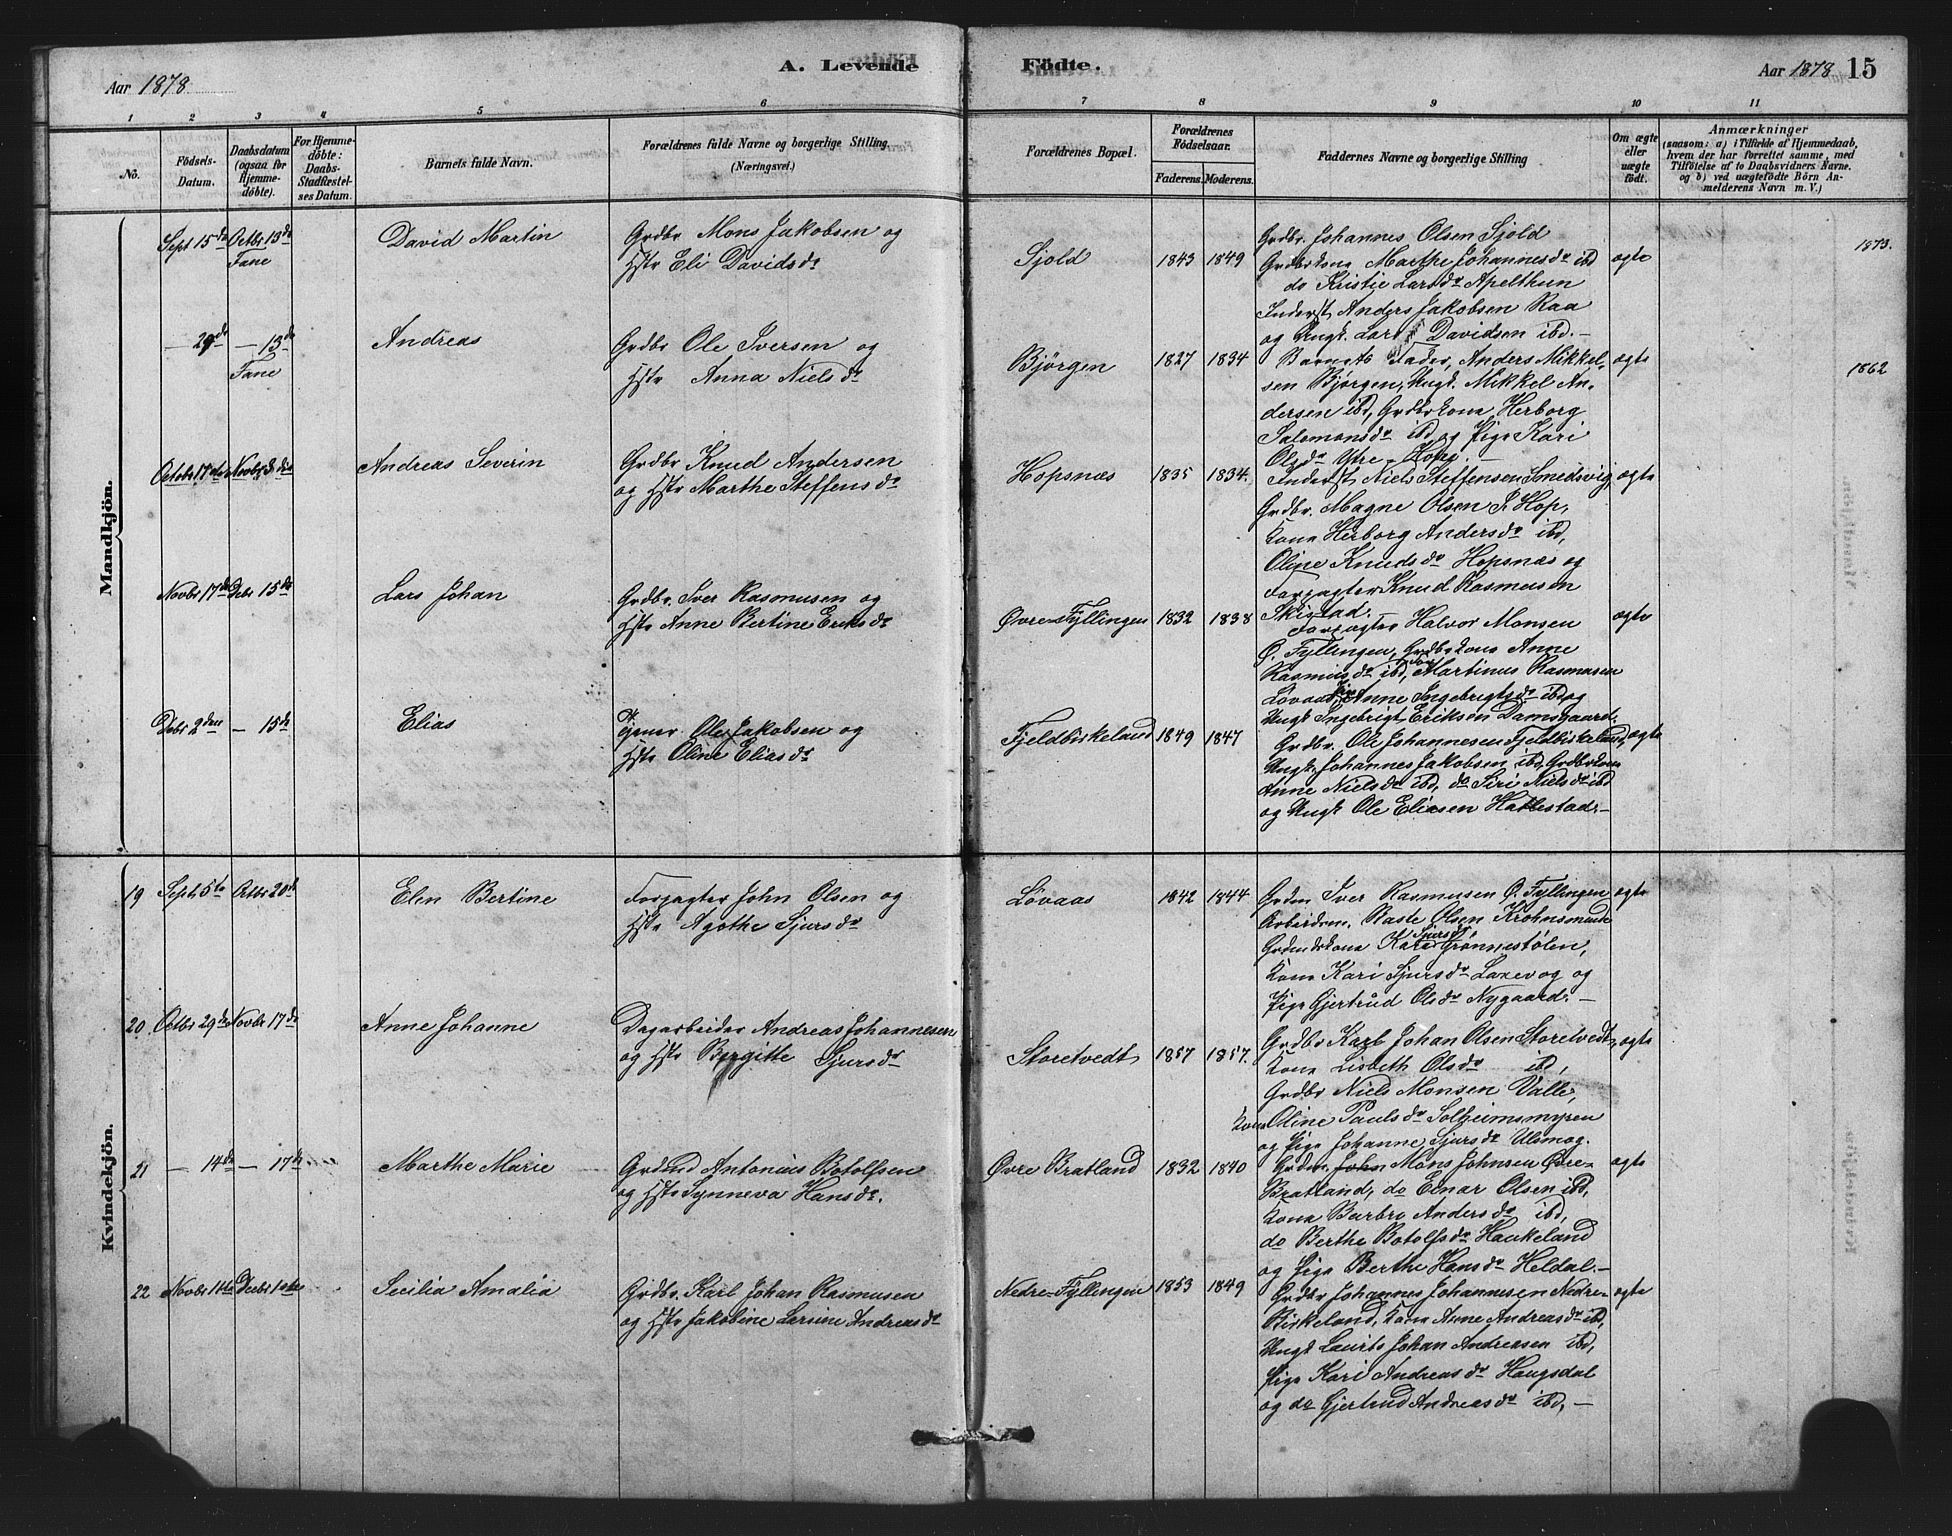 Aar 1878.
A. Levende
Födte.
Aar 1878
15
1 2 3 4 5 6 7 8 9 10 11
No.
Födsels-
Datum.
Daabsdatum
(ogsaa for
Hjemme-
döbte).
For Hjemme-
döbte:
Daabs-
Stadfæstel-
ses Datum.
Barnets fulde Navn.
Forældrenes fulde Navne og borgerlige Stilling
(Næringsvei.)
Forældrenes Bopæl.
Forældrenes
Födselsaar.
Faderens. Moderens.
Faddernes Navne og borgerlige Stilling
Om ægte
eller
uægte
födt.
Anmærkninger
(saasom: a) i Tilfælde af Hjemmedaab,
hvem der har forrettet samme, med
Tilföielse af to Daabsvidners Navne.
og b) ved uægtefödte Börn An-
melderens Navn m. V.)
Mandkjön.
Sept 15de Octbr 13de
Fane
David Martin
Grdbr Mons Jakobsen og
Hstr Eli Davidsdr
Sjold
1843 1849
Grdbr. Johannes Olsen Sjold
Grdbrkone Marthe Johannesdr ibd
do Kristie Larsdr Apelthun
Inderst Anders Jakobsen Raa
og Ungk. Lars Davidsen ibd. —
ægte
1873.
— 29de — 13de
Fane
Andreas
Grdbr Ole Iversen og
Hstr Anna Nielsdr
Bjørgen
1827 1834
Barnets Fader, Anders Mikkel-
sen Bjørgen, Ungk. Mikkel An-
dersen ibd, Grdbrkone Herborg
Salomonsdr ibd og Pige Kari
Olsdr Ytre-Hop. —
ægte
1862
Octobr 17de Novbr 3die
Andreas Severin
Grdbr Knud Andersen
og Hstr Marthe Steffensdr
Hopsnæs
1835 1834.
Inderst Niels Steffensen Smedsvig,
Grdbr. Magne Olsen I. Hop,
Kone Herborg Andersdr ibd,
Oline Knudsdr Hopsnæs og
Forpagter Knud Rasmusen
Skistad.
ægte
Novbr 17de Debr 15de
Lars Johan
Grdbr. Iver Rasmusen og
Hstr Anne Bertine Eriksdr
Øvre-Fyllingen
1832 1838
Forpagter Halvor Monsen
Ø. Fyllingen, Grdbrkone Anne
Rasmusdr ibd, Martinus Rasmusen
Løvaas, Anne Ingebrigtsdr ibd og
Ungk Ingebrigt Eriksen Damsgaard
ægte
Debr 2den — 15de
Elias
Tjener Ole Jakobsen og
Hstr Oline Eliasdr
Fjeldbirkeland
1849 1847
Grdbr. Ole Johannesen Fjeldbirkeland,
Ungk. Johannes Jakobsen ibd, Grdbrkone
Anne Nielsdr ibd, do Siri Nielsdr ibd
og Ungk Ole Eliasen Hattestad. —
ægte
Kvindekjön.
19 Septbr 5te Octbr 20de
Elen Bertine
Forpagter John Olsen og
Hstr Agathe Sjursdr
Løvaas
1842 1844
Grdm Iver Rasmusen Ø. Fyllingen
Arbeidsm. Raste Olsen Krohnsminde
Grdmdskone Kari Sjursdr Grønnestølen,
Kone Kari Sjursdr Laxevog og
Pige Gjertrud Olsdr Nygaard. —
ægte
20 Octbr 29de Novbr 17de
Anne Johanne
Dagarbeider Andreas Johannesen
og Hstr Birgitte Sjursdr
Storetvedt
1857 1857.
Grdbr Karl Johan Olsen Storetvedt,
Kone Lisbeth Olsdr ibd,
Grdbr Niels Monsen Valle,
Kone Oline Paulsdr Solheimsmyren
og Pige Johanne Sjursdr Ulsmog.
ægte
21 — 14de — 17de
Marthe Marie
Grdmd Antonius Botolfsen
og Hstr Synneva Hansdr.
Øvre Bratland
1832 1840
Grdm. John Mons Johnsen Øvre-
Bratland, do Einar Olsen ibd,
Kone Barbro Andersdr ibd,
do Berthe Botolfsdr Haukeland
og Pige Berthe Hansdr Heldal. —
ægte
22 Novbr 11te Decbr 1ste
Secilia Amalia
Grdbr. Karl Johan Rasmusen
og Hstr Jakobine Larsine Andreasdr
Nedre-Fyllingen
1853 1849
Grdbr Johannes Johannesen Nedre-
Birkeland, Kone Anne Andreasdr ibd,
Ungk Laurits Johan Andreasen ibd,
Pige Kari Andreasdr Haugsdal
og do Gjertrud Andreasdr ibd, —
ægte